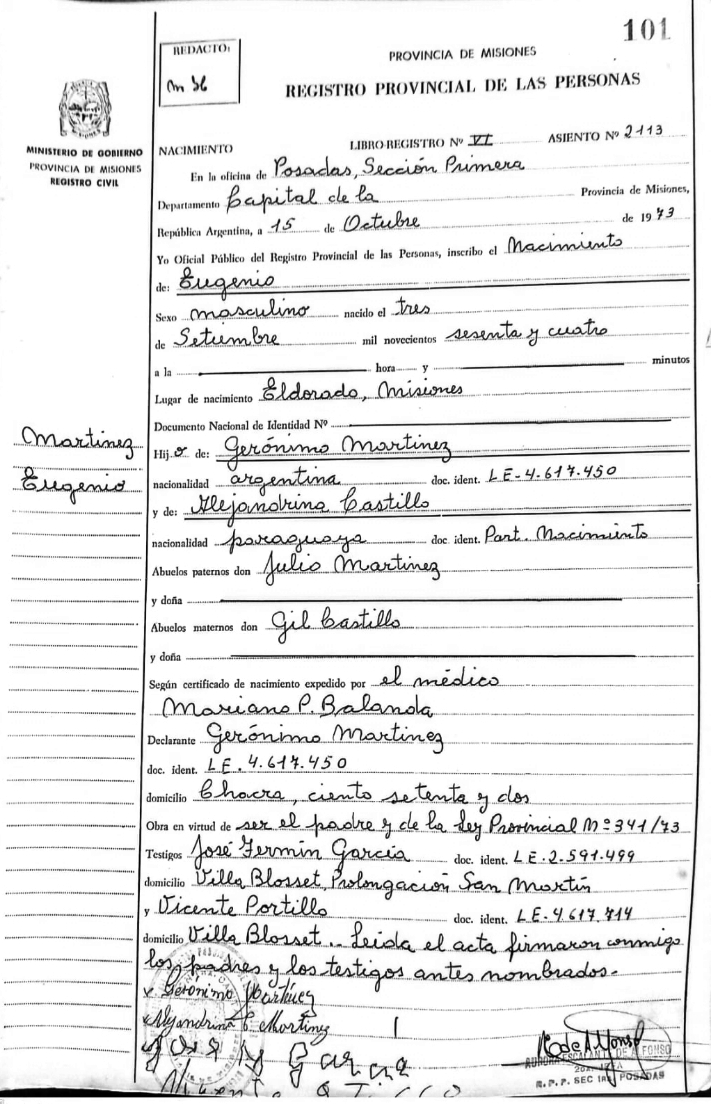 101
REDACTO:
PROVINCIA DE MISIONES
REGISTRO PROVINCIAL DE LAS PERSONAS
MINISTERIO DE GOBIERNO
PROVINCIA DE MISIONES
REGISTRO CIVIL
NACIMIENTO LIBRO-REGISTRO Nº VI ASIENTO Nº 2113
En la oficina de Posadas, Sección Primera
Departamento Capital de la Provincia de Misiones,
República Argentina, a 15 de Octubre de 1973
Yo Oficial Público del Registro Provincial de las Personas, inscribo el Nacimiento
de: Eugenio
Sexo masculino nacido el tres
de Setiembre mil novecientos sesenta y cuatro
a la hora y minutos
Lugar de nacimiento Eldorado, Misiones
Documento Nacional de Identidad Nº
Martinez
Hijo de: Gerónimo Martinez
Eugenio
nacionalidad argentina doc. ident. LE-4.617.450
y de: Alejandrina Castillo
nacionalidad paraguaya doc. ident. Part. Nacimiento
Abuelos paternos don Julio Martinez
y doña
Abuelos maternos don Gil Castillo
y doña
Según certificado de nacimiento expedido por el médico
Mariano P. Balanda
Declarante Gerónimo Martinez
doc. ident. LE.4.617.450
domicilio Chacra, ciento setenta y dos
Obra en virtud de ser el padre y de la Ley Provincial Nº 341/73
Testigos José Fermín García doc. ident. LE.2.591.499
domicilio Villa Blosset, Prolongación San Martín
y Vicente Portillo doc. ident. LE-4.617.714
domicilio Villa Blosset.- Leida el acta firmaron conmigo
los padres y los testigos antes nombrados.-
Geronimo Martinez
Alejandrina C Martinez
Jose Garcia
R. P. P. SEC 1ra POSADAS